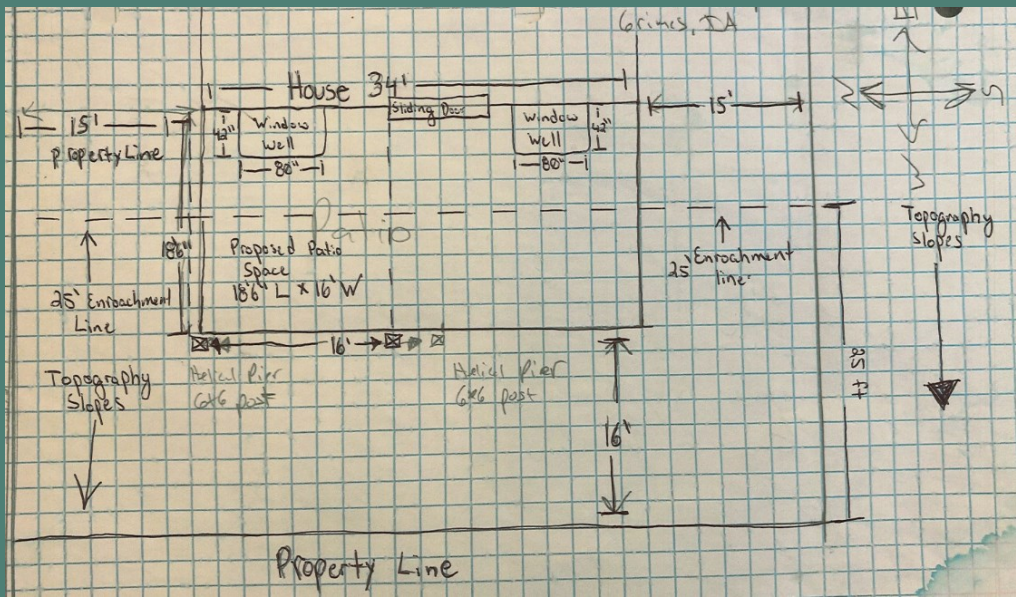 Grimes, IA
House 34'
Sliding Door
15'
Property Line
42"
Window
Well
80"
Window
Well
42"
80"
15'
N
S
E
W
Patio
18'6"
Proposed Patio
Space
18'6" L x 16' W
25' Enroachment
Line
25' Enroachment
line
Topography
Slopes
16'
Helical Pier
6x6 post
Helical Pier
6x6 post
Topography
Slopes
16'
25 ft
Property Line